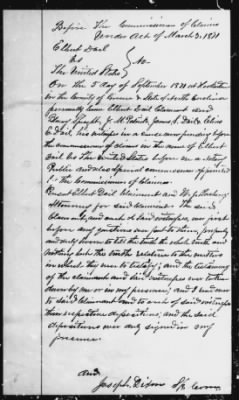 Before The Commissioners of Claims
Under Act of March 3. 1871
Elbert Dail
vs
The United States
On the 5 day of September 1871 at
in the County of Greene & State of North Carolina
personally came Elbert Dail Claimant and
J. M. Patrick, James
Dail, his witnesses in a cause now pending before
the commissioners of claims in the name of Elbert
Dail vs The United States before me a Notary
Public and also special commissioner appointed
by the Commissioners of Claims.
Present Elbert Dail Claimant and
Attorney for said claimant. The said
Claimant, and each of said witnesses, was first
before any questions were put to them, properly
and duly sworn to tell the truth the whole truth and
nothing but the truth relative to the matters
in which they were to testify; and the testimony
of the claimant and his witnesses was written
down by me or in my presence; and
to said Claimant and to each of said witnesses
their respective depositions; and the said
depositions were duly signed in my
presence.
and
Joseph Dixon Spl. Comr.